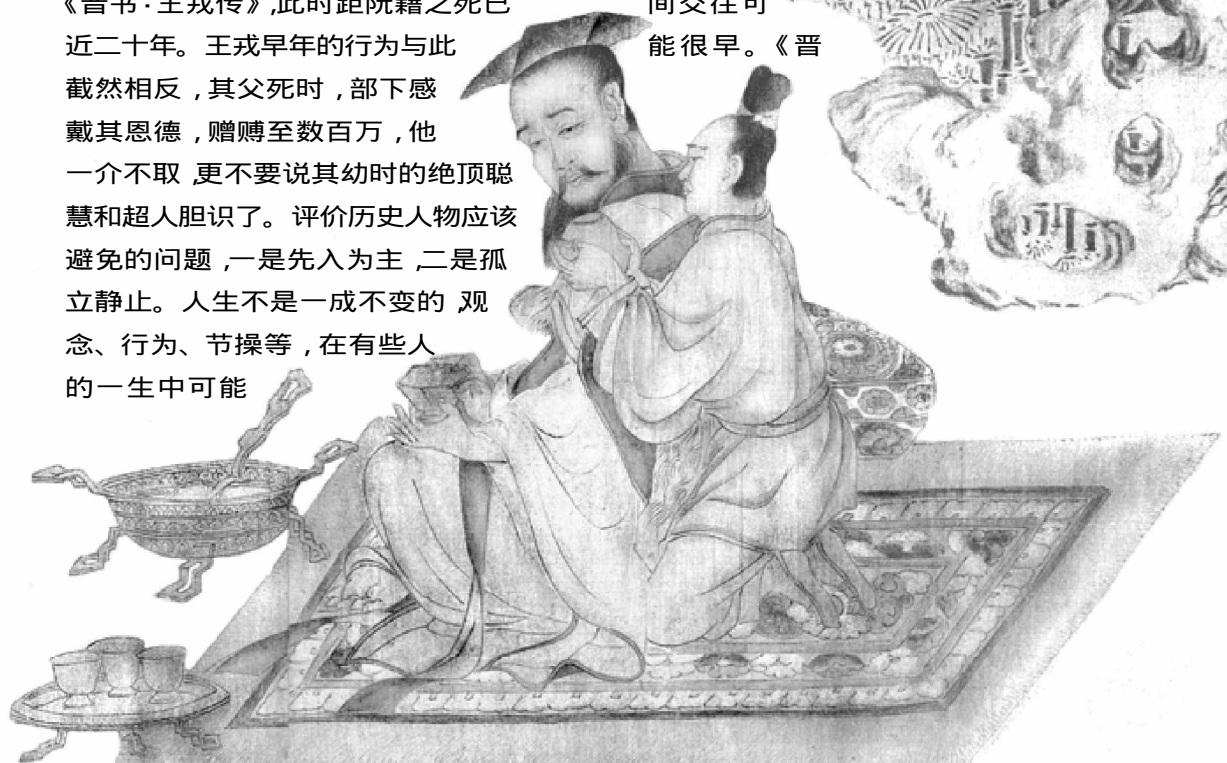 《晋书·王戎传》,此时距阮籍之死已
近二十年。王戎早年的行为与此
截然相反,其父死时,部下感
戴其恩德,赠赙至数百万,他
一介不取,更不要说其幼时的绝顶聪
慧和超人胆识了。评价历史人物应该
避免的问题,一是先入为主,二是孤
立静止。人生不是一成不变的,观
念、行为、节操等,在有些人
的一生中可能
间交往可
能很早。《晋